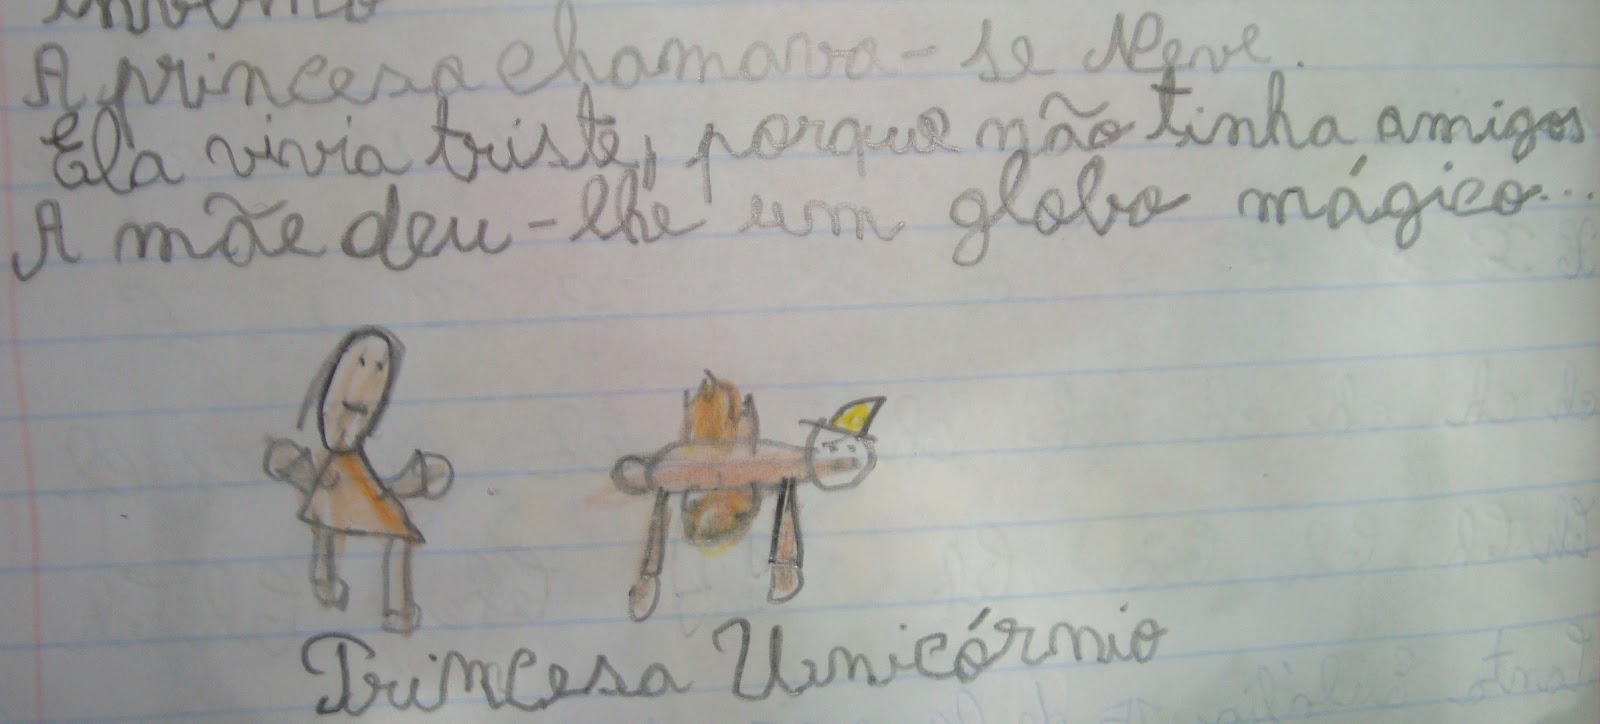 A princesa chamava-se Neve.
Ela vivia triste, porque não tinha amigos
A mãe deu-lhe um globo mágico...
Princesa Unicórnio